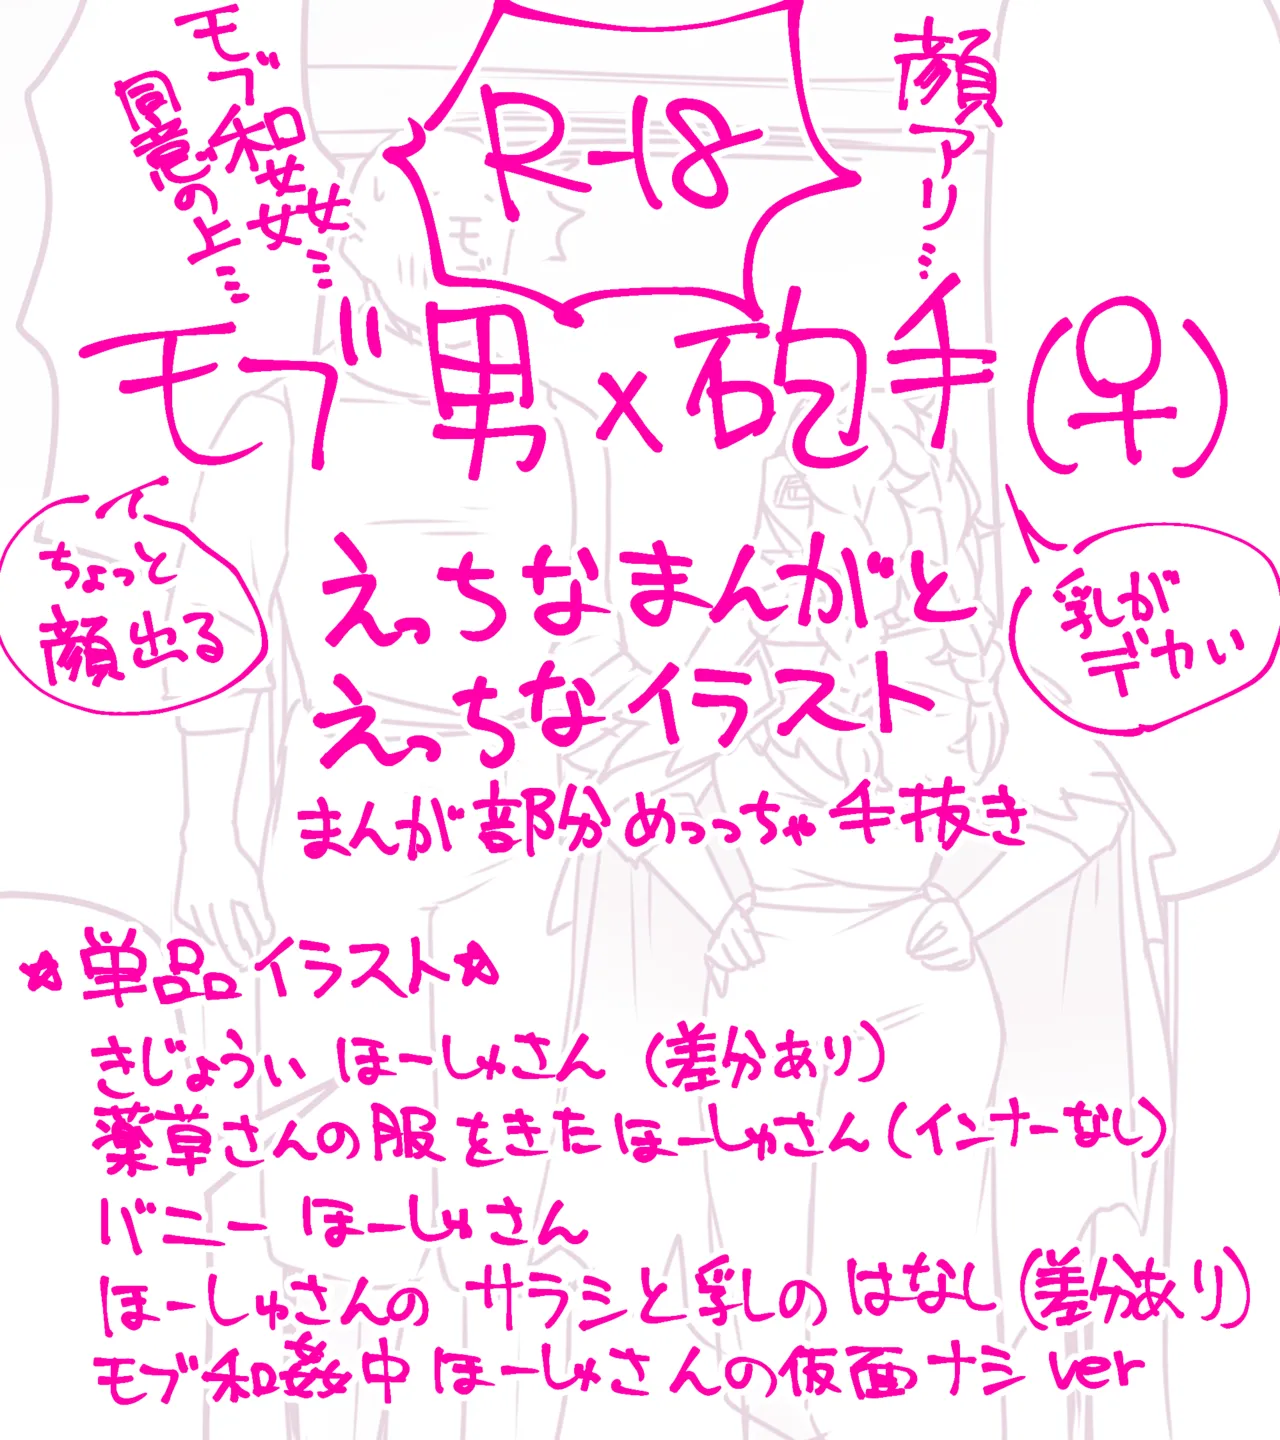 R-18
モブ和姦…
同意の上…
顔アリ…
モブ男×砲手(♀)
ちょっと
顔出る
乳が
デカい
えっちなまんがと
えっちなイラスト
まんが部分めっっちゃ手抜き
☆単品イラスト☆
きじょうい ほーしゅさん (差分あり)
薬草さんの服をきたほーしゅさん(インナーなし)
バニー ほーしゅさん
ほーしゅさんの サラシと乳のはなし(差分あり)
モブ和姦中ほーしゅさんの仮面ナシver
モブ